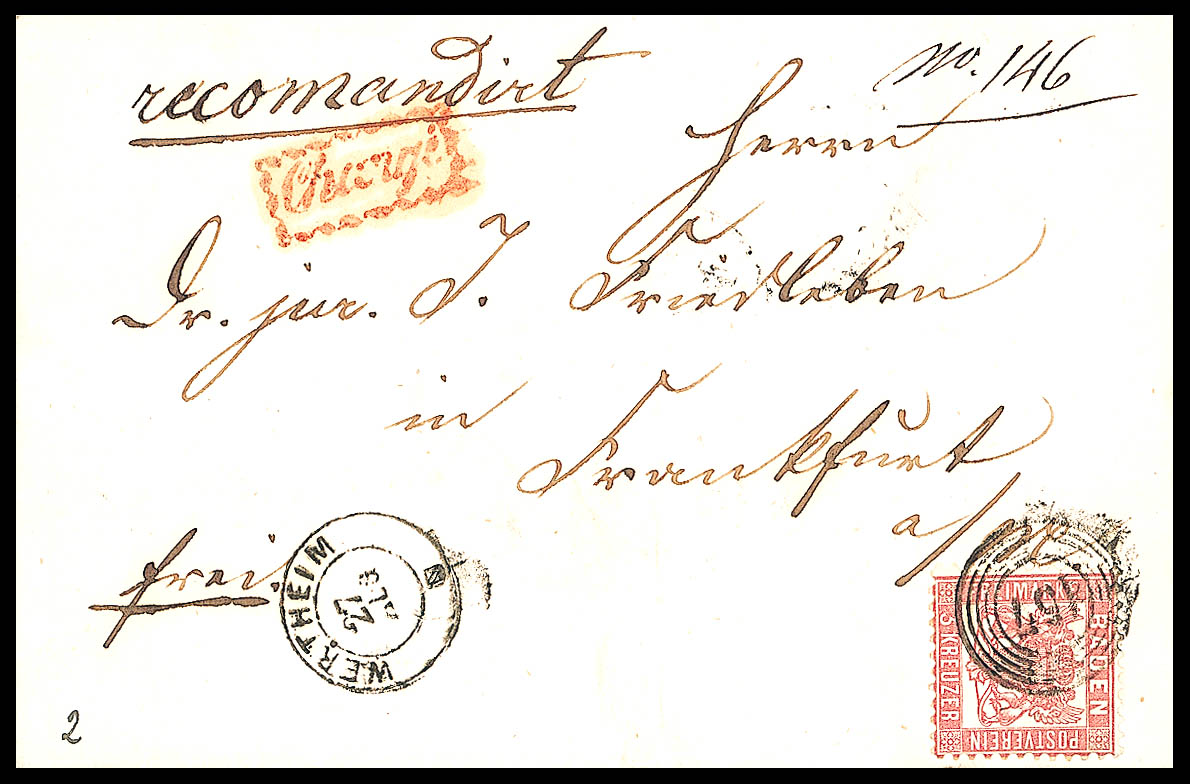 recomandirt
No. 146
Chargé
Herrn
Dr. jur. J. Friedleben
in
Frankfurt
a/M
frei
WERTHEIM
27
FREIMARKE
BADEN
KREUZER
POSTVEREIN
2